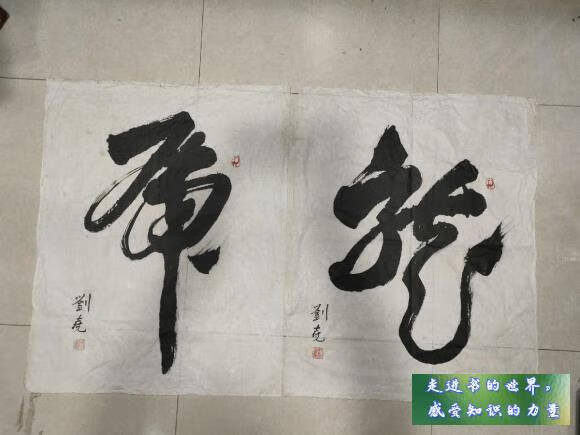 龍
劉堯
虎
劉堯
走进书的世界。
感受知识的力量